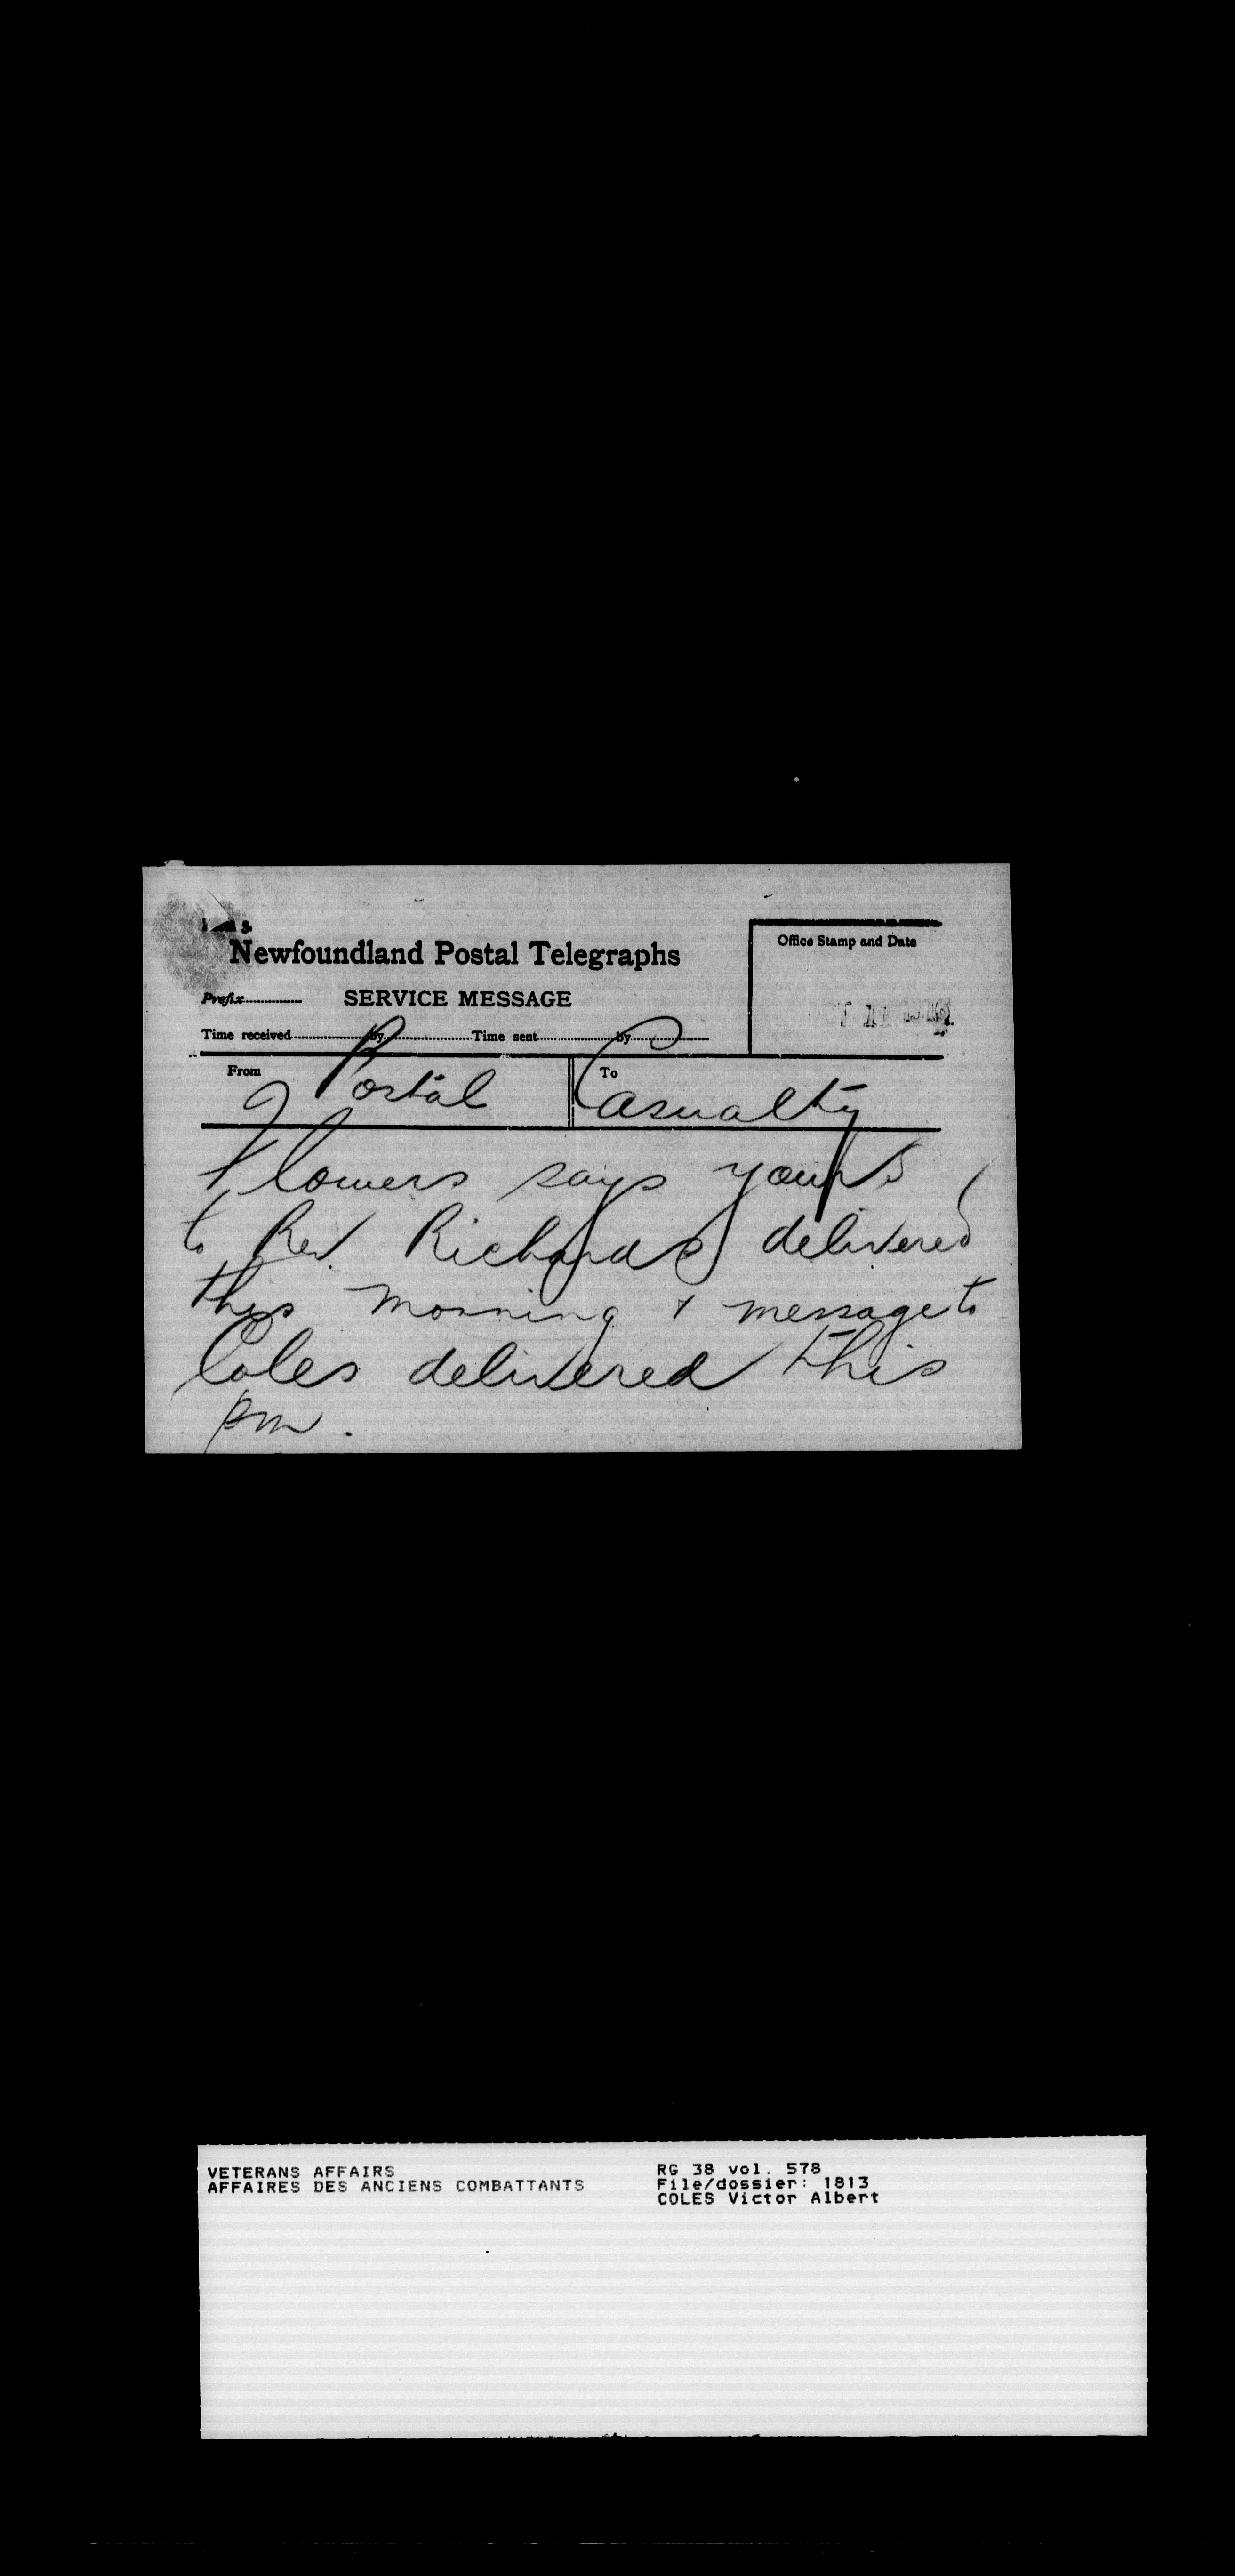 Newfoundland Postal Telegraphs
Office Stamp and Date
Prefix SERVICE MESSAGE
Time received by Time sent by
From Postal To Casualty
Flowers says yours
to Rev. Richards delivered
this morning & message to
Coles delivered this
pm.
VETERANS AFFAIRS
AFFAIRES DES ANCIENS COMBATTANTS
RG 38 vol. 578
File/dossier: 1813
COLES Victor Albert